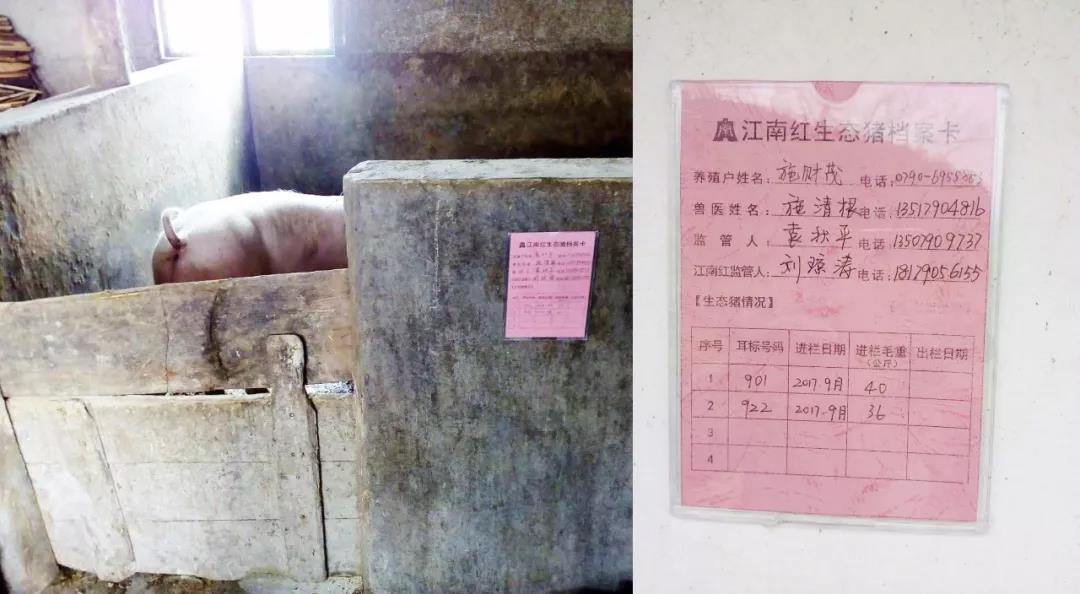 江南红生态猪档案卡
江南红生态猪档案卡
养殖户姓名：施财茂 电话：0790-6958883
兽医姓名：施清根 电话：13517904816
监管人：袁秋平 电话：13507909737
江南红监管人：刘琼涛 电话：18179056155
【生态猪情况】
序号 耳标号码 进栏日期 进栏毛重（公斤） 出栏日期
1 901 2017.9月 40
2 922 2017.9月 36
3
4